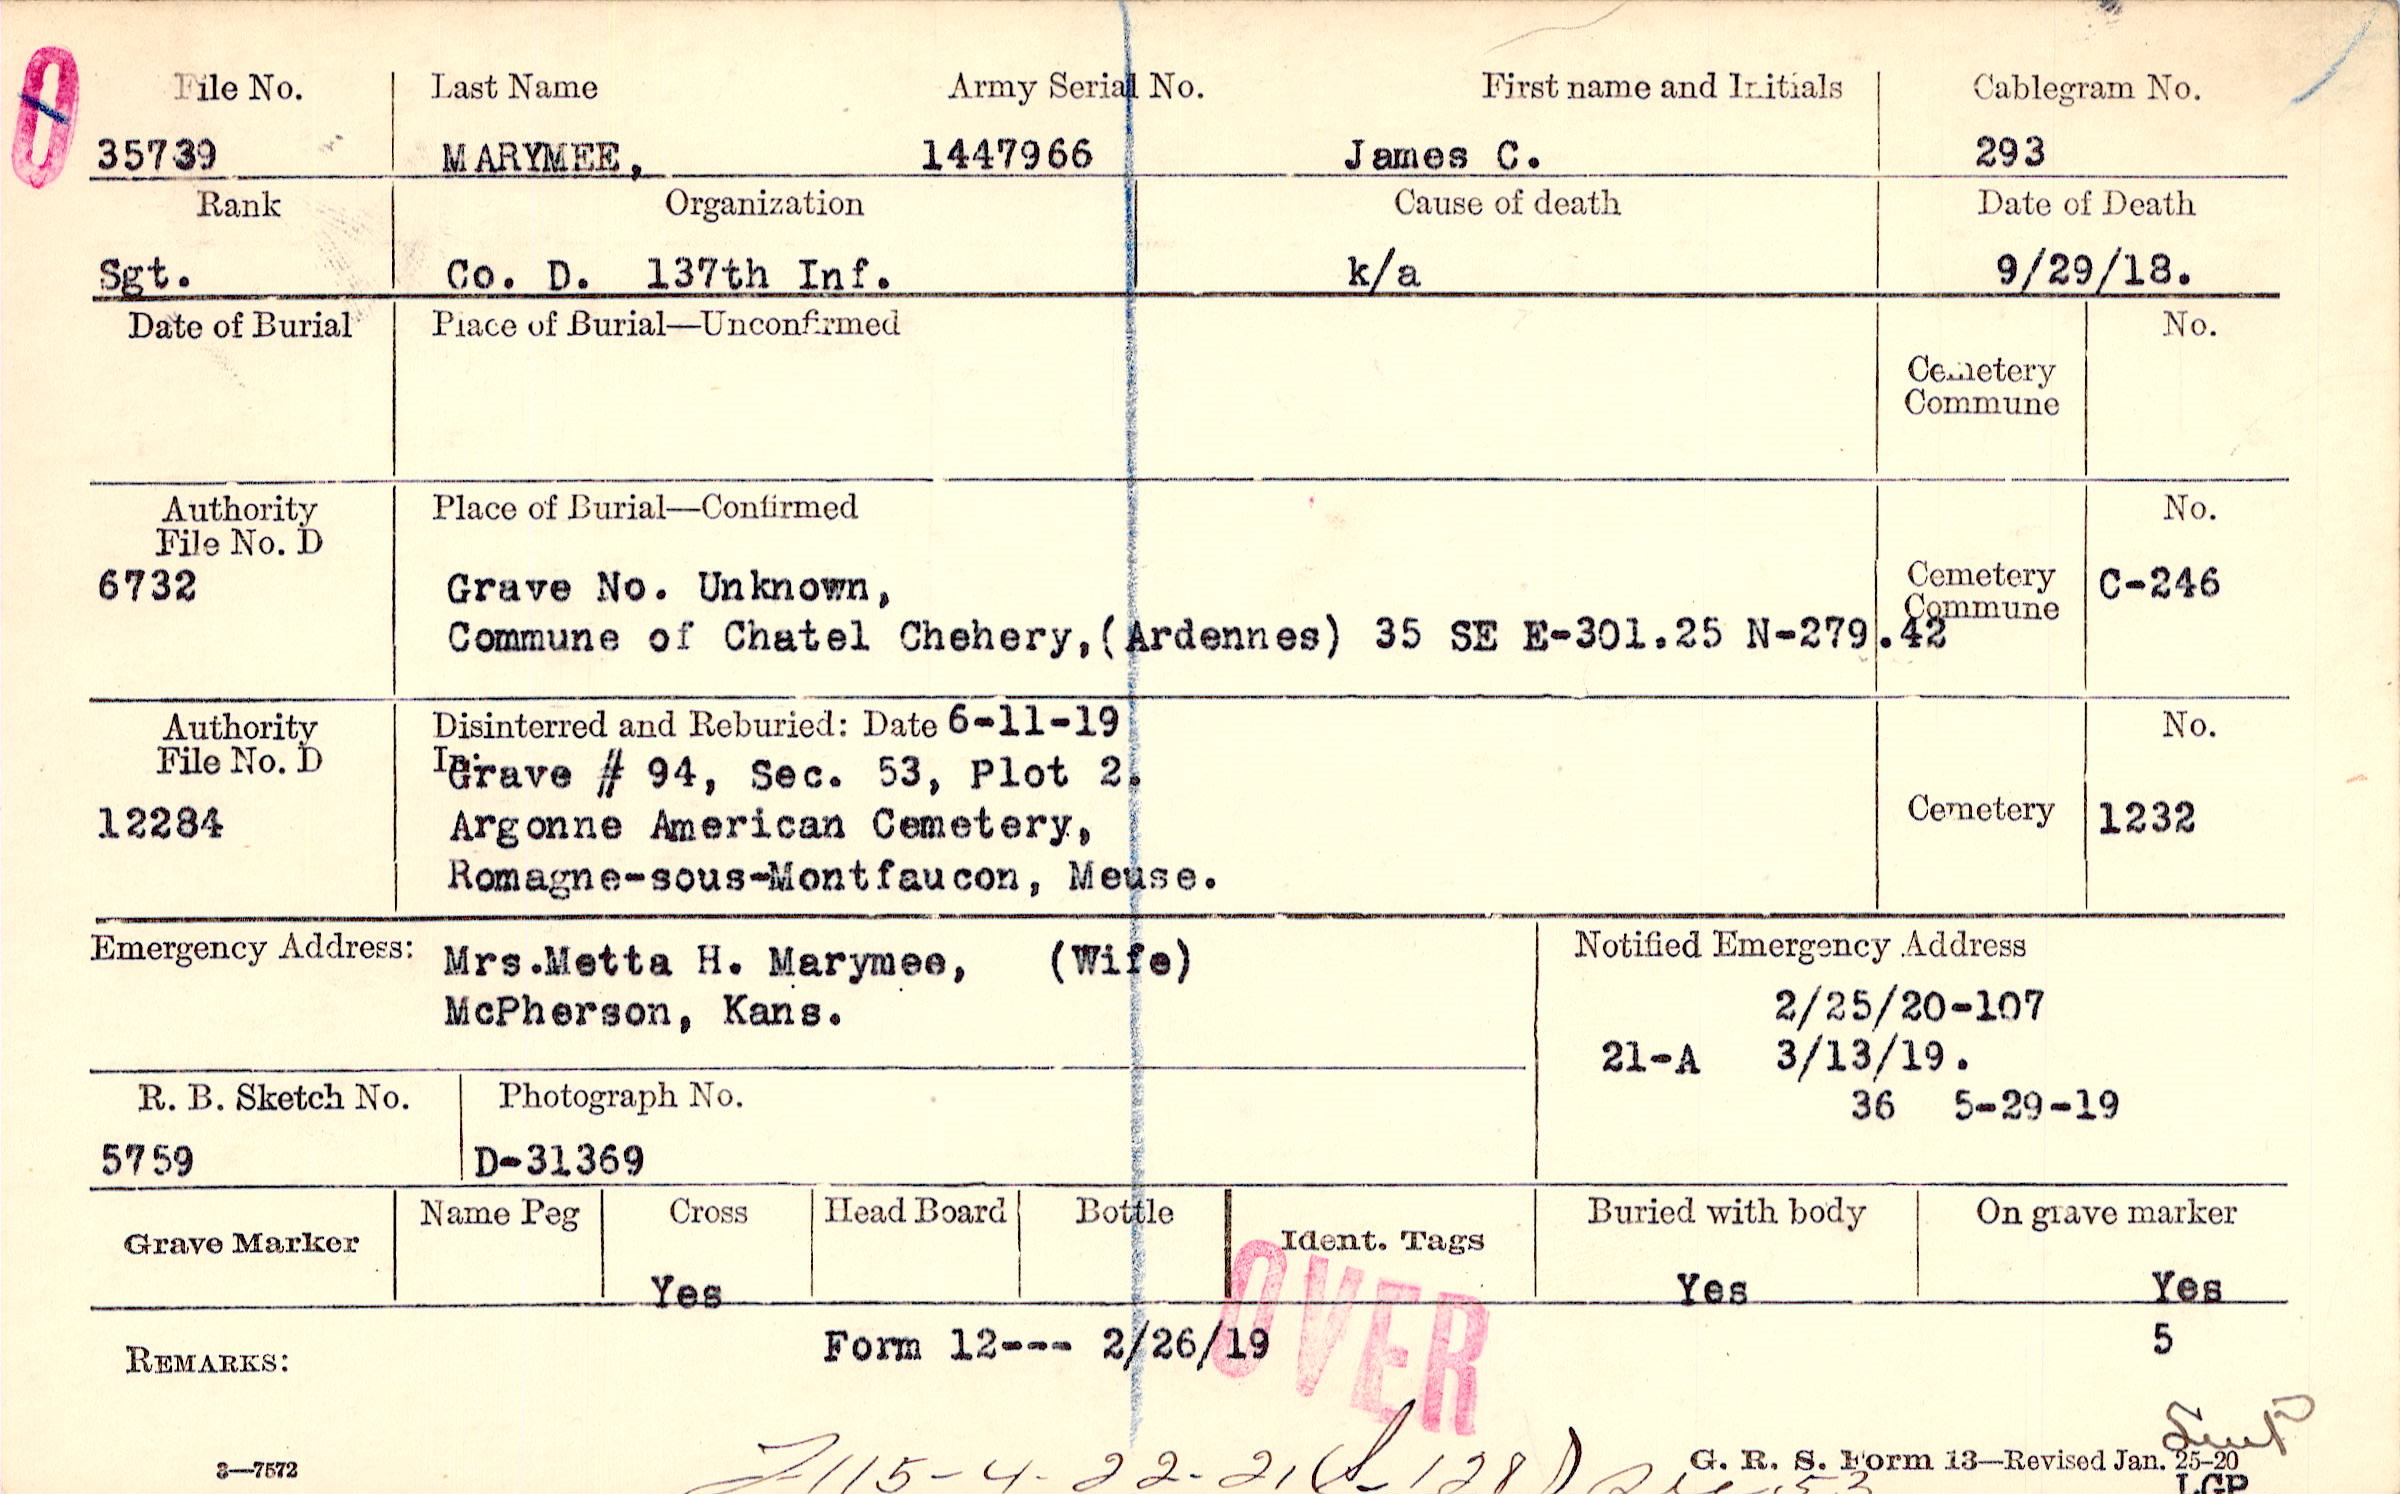 File No.
Last Name
Army Serial No.
First name and Initials
Cablegram No.
35739
MARYMEE,
1447966
James C.
293
Rank
Organization
Cause of death
Date of Death
Sgt.
Co. D. 137th Inf.
k/a
9/29/18.
Date of Burial
Place of Burial—Unconfirmed
No.
Cemetery
Commune
Authority
File No. D
6732
Place of Burial—Confirmed
Grave No. Unknown,
Commune of Chatel Chehery,(Ardennes) 35 SE E-301.25 N-279.42
Cemetery
Commune
No.
C-246
Authority
File No. D
12284
Disinterred and Reburied: Date 6-11-19
In:
Grave # 94, Sec. 53, Plot 2.
Argonne American Cemetery,
Romagne-sous-Montfaucon, Meuse.
Cemetery
No.
1232
Emergency Address:
Mrs.Metta H. Marymee, (Wife)
McPherson, Kans.
Notified Emergency Address
2/25/20-107
21-A 3/13/19.
36 5-29-19
R. B. Sketch No.
5759
Photograph No.
D-31369
Grave Marker
Name Peg
Cross
Yes
Head Board
Bottle
Ident. Tags
Buried with body
Yes
On grave marker
Yes
OVER
REMARKS:
Form 12--- 2/26/19
5
3—7572
G. R. S. Form 13—Revised Jan. 25-20
LGP